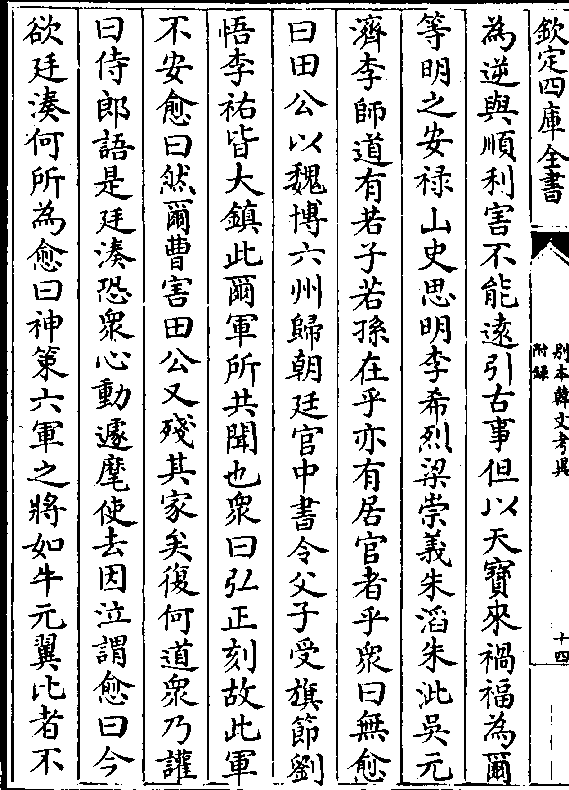 欽定四庫全書
别本韓文考異
附録
十四
為逆與順利害不能遠引古事但以天寳來禍福為爾
等明之安禄山史思明李希烈梁崇義朱滔朱泚吳元
濟李師道有若子若孫在乎亦有居官者乎衆曰無愈
曰田公以魏博六州歸朝廷官中書令父子受旗節劉
悟李祐皆大鎮此爾軍所共聞也衆曰弘正刻故此軍
不安愈曰然爾曹害田公又殘其家矣復何道衆乃讙
曰侍郎語是廷湊恐衆心動遽麾使去因泣謂愈曰今
欲廷湊何所為愈曰神策六軍之將如牛元翼比者不